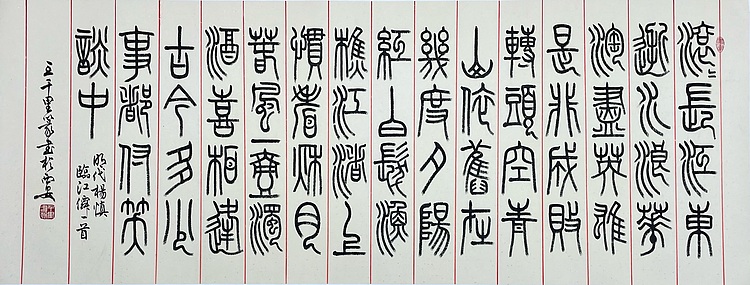 滾〻長江東
逝水浪華
淘盡英雄
是非成敗
轉頭空青
山依舊在
幾度夕陽
紅白髮漁
樵江渚上
慣看秋月
春風一壺濁
酒喜相逢
古今多少
事都付笑
談中
明代楊慎
臨江僊一首
千里篆書於西安